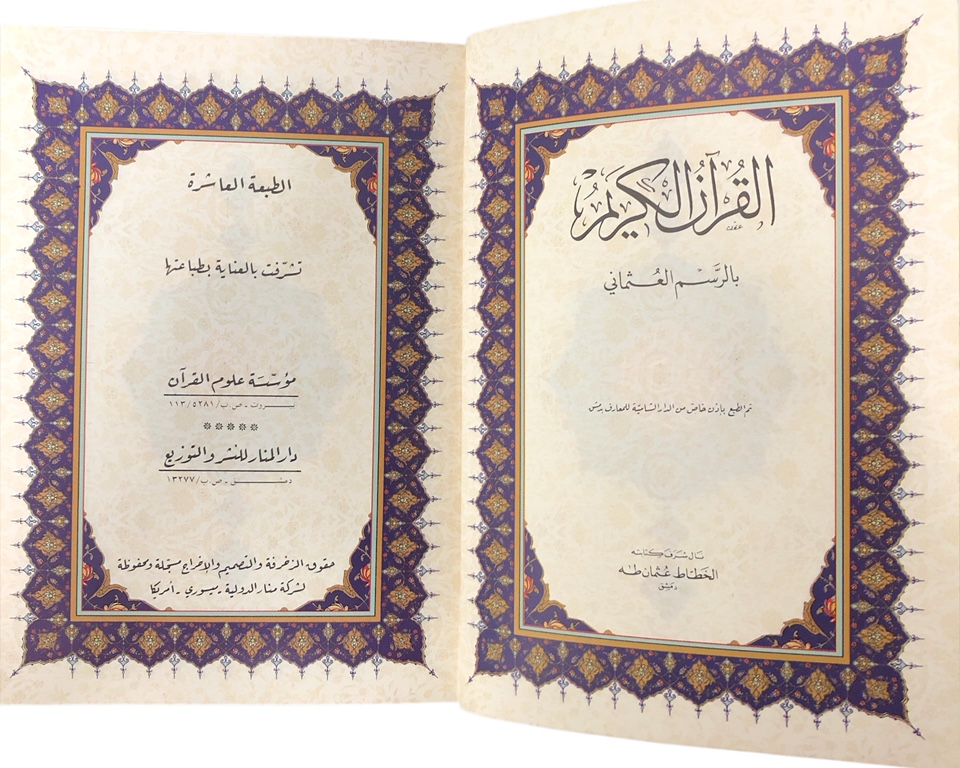 القُرآنُ الكَرِيمُ
بالرَّسْمِ العُثماني
تم الطبع بإذن خاص من الدار الشاميّة للمعارف بدمشق
نال شرف كتابته
الخطاط عثمان طه
دمشق
الطبعة العاشرة
تشرّفت بالعناية بطباعتها
مؤسّسة علوم القرآن
بيروت - ص ب/ ١١٣/٥٢٨١
دار المنار للنشر والتوزيع
دمشق - ص ب/ ١٣٢٧٧
حقوق الزخرفة والتصميم والإخراج مسجّلة ومحفوظة
لشركة منار الدولية - ميسوري - أمريكا